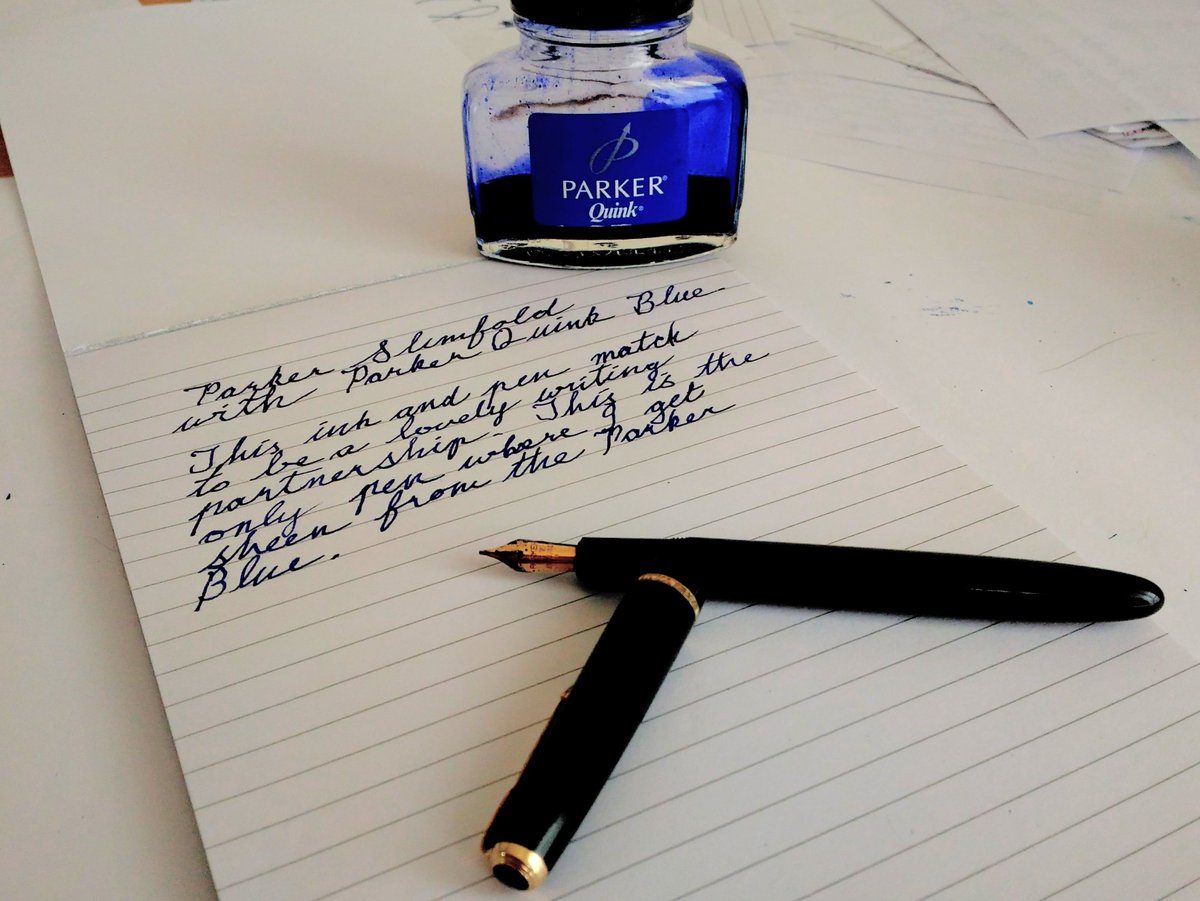 PARKER
Quink
Parker Slimfold
with Parker Quink Blue.
This ink and pen match
to be a lovely writing
partnership. This is the
only pen where I get
sheen from the Parker
Blue.